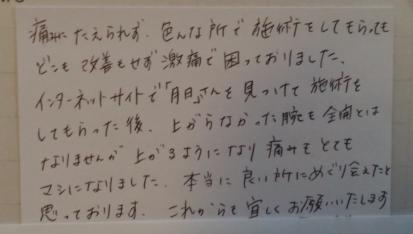 痛みにたえられず、色んな所で施術をしてもらっても
どこも改善もせず激痛で困っておりました。
インターネットサイトで「月日」さんを見つけて施術を
してもらった後、上がらなかった腕も全開とは
なりませんが上がるようになり痛みもとても
マシになりました。本当に良い所にめぐり会えたと
思っております。これからも宜しくお願いいたします